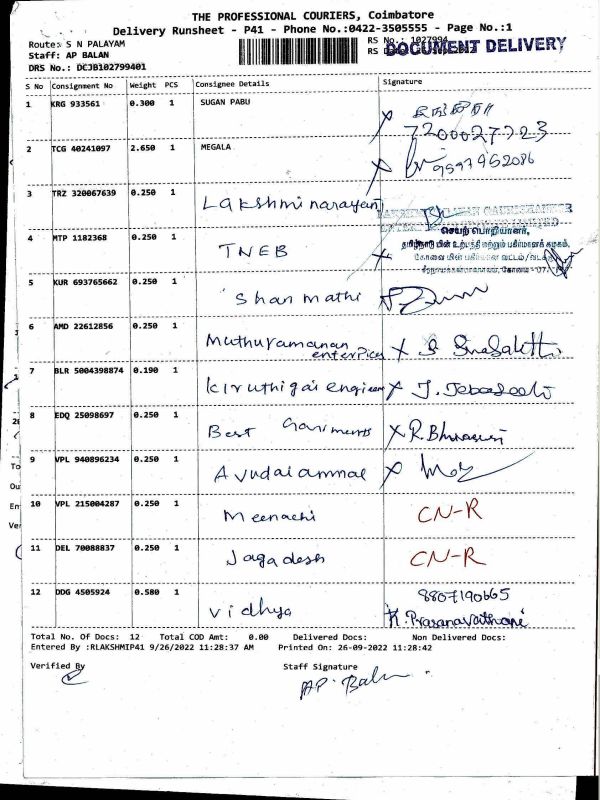 THE PROFESSIONAL COURIERS, Coimbatore
Delivery Runsheet - P41 - Phone No.:0422-3505555 - Page No.:1
Route: S N PALAYAM
RS No.: 1027994
Staff: AP BALAN
DOCUMENT DELIVERY
DRS No.: DCJB102799401
S No Consignment No Weight PCS Consignee Details Signature
1 KRG 933561 0.300 1 SUGAN PABU
7200027723
2 TCG 40241097 2.650 1 MEGALA
9597952086
3 TRZ 320067639 0.250 1 Lakshmi narayan
4 MTP 1182368 0.250 1 TNEB
செயற் பொறியாளர்,
தமிழ்நாடு மின் உற்பத்தி மற்றும் பகிர்மானக் கழகம்,
5 KUR 693765662 0.250 1 Shan mathi
6 AMD 22612856 0.250 1 Muthuramanan
enterpices
7 BLR 5004398874 0.190 1 kiruthigai engineer X J. Jebaseeli
8 EDQ 25098697 0.250 1 Best Gariments X R.
9 VPL 940896234 0.250 1 Avudaiammal X
10 VPL 215004287 0.250 1 Meenachi CN-R
11 DEL 70088837 0.250 1 Jagadesh CN-R
12 DDG 4505924 0.580 1 Vidhya 8807190665
K. Prasanavathani
Total No. Of Docs: 12 Total COD Amt: 0.00 Delivered Docs: Non Delivered Docs:
Entered By :RLAKSHMIP41 9/26/2022 11:28:37 AM Printed On: 26-09-2022 11:28:42
Verified By Staff Signature
AP. Balan